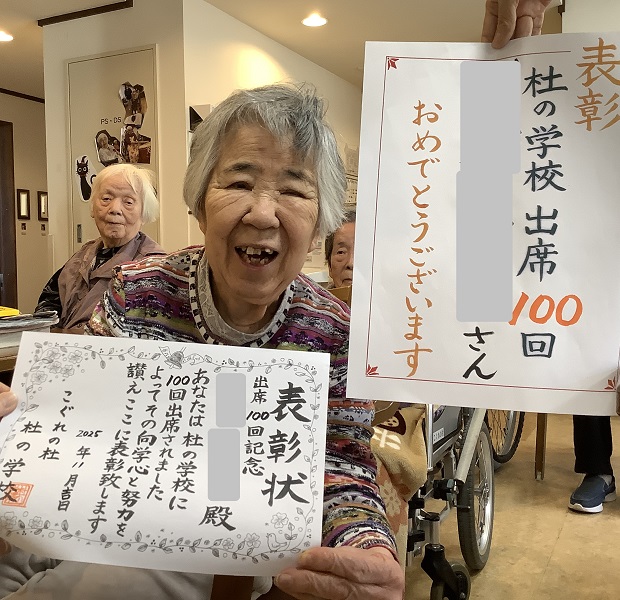 表彰
杜の学校出席100回
さん
おめでとうございます
表彰状
出席100回記念
殿
あなたは杜の学校に
100回出席されました
よってその向学心と努力を
讃えここに表彰致します
2025年11月吉日
こぐれの杜
杜の学校
PS-DS